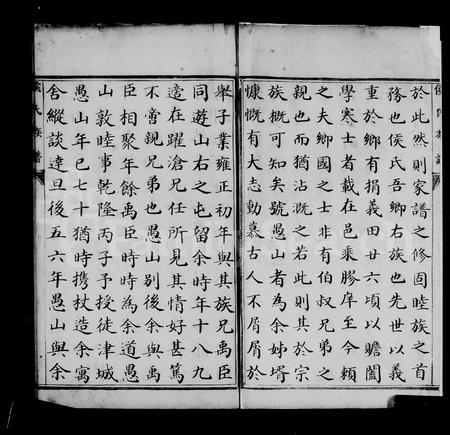 於此然則家譜之修固睦族之首
務也侯氏吾鄉右族也先世以義
重於鄉有捐義田廿六頃以贍闔
學寒士者載在邑乘膠庠至今賴
之夫鄉國之士非有伯叔兄弟之
親也而猶沾溉之若此則其於宗
族概可知矣號愚山者為余姊壻
慷慨有大志動慕古人不屑屑於
舉子業雍正初年與其族兄禹臣
同遊山右之屯留余時年十八九
適在躍滄兄任所見其情好甚篤
不啻親兄弟也愚山別後余與禹
臣相聚年餘禹臣時時為余道愚
山敦睦事乾隆丙子予授徒津城
愚山年已七十猶時攜杖造余寓
舍縱談達旦後五六年愚山與余